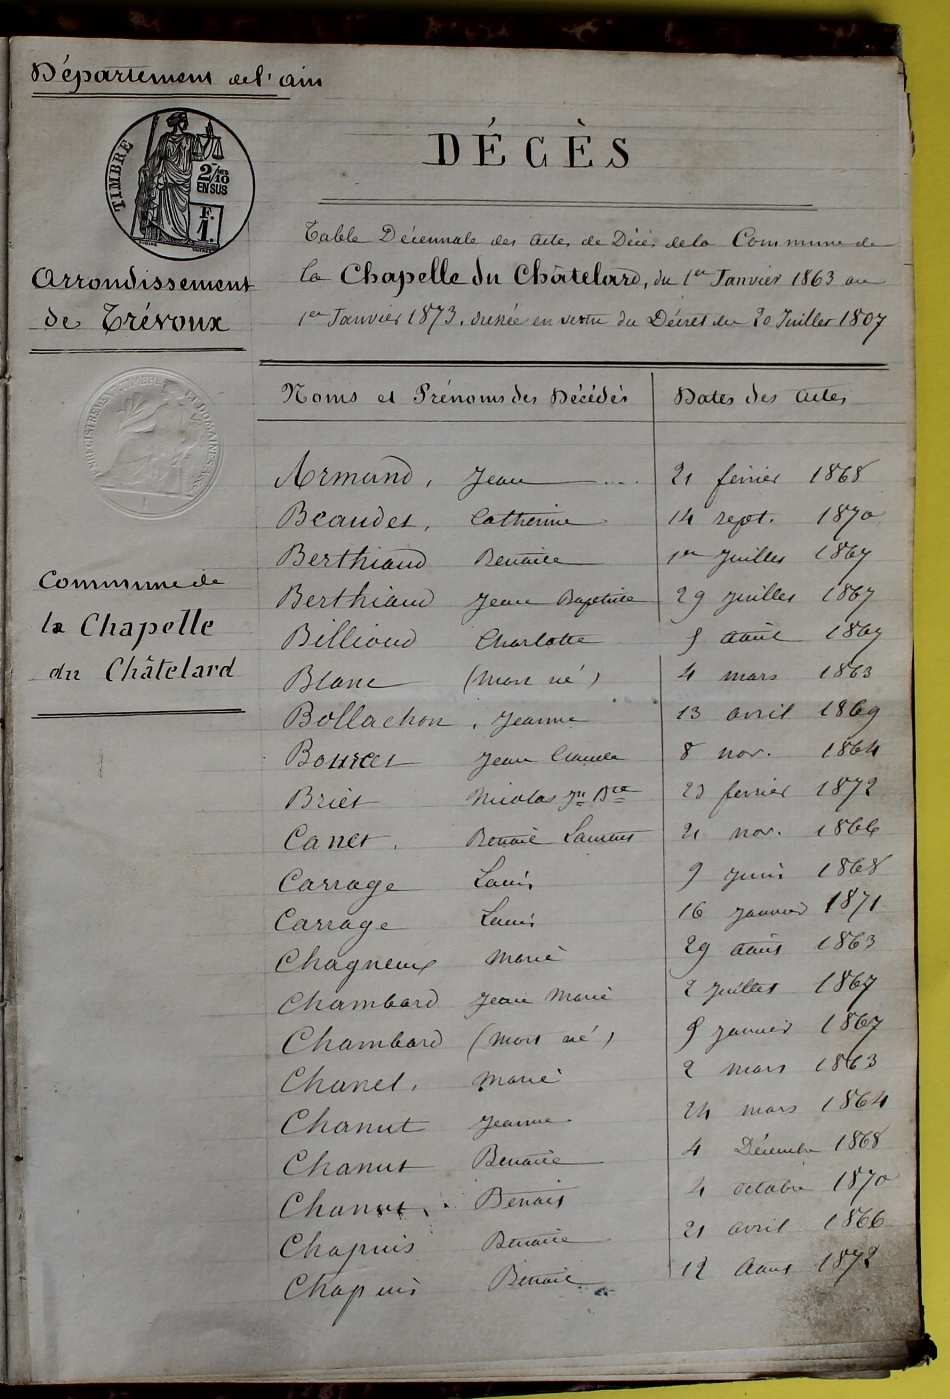 Département de l'ain
TIMBRE
2/10
EN SUS
F.
1.
Arrondissement
de Trévoux
Commune de
la Chapelle
du Châtelard
DÉCÈS
Table Décennale des actes de Décès de la Commune de
la Chapelle du Châtelard, du 1er Janvier 1863 au
1er Janvier 1873, dressée en vertu du Décret du 20 Juillet 1807
Noms et Prénoms des Décédés Dates des actes
Armand, Jean 21 février 1868
Beaudet, Catherine 14 sept. 1870
Berthiaud Benoite 1er Juillet 1867
Berthiaud Jean Baptiste 29 Juillet 1867
Billioud Charlotte 5 août 1867
Blanc (mort né) 4 mars 1863
Bollachon, Jeanne 13 avril 1869
Bourcet Jean Claude 8 nov. 1864
Briet Nicolas Jn Bte 23 fevrier 1872
Canet. Benoit Laurent 21 nov. 1866
Carrage Louis 9 juin 1868
Carrage Louis 16 janvier 1871
Chagneux Marie 29 août 1863
Chambard Jean Marie 2 juillet 1867
Chambard (mort né) 5 janvier 1867
Chanel. Marie 2 mars 1863
Chanut Jeanne 24 mars 1864
Chanut Benoite 4 Décembre 1868
Chanut. Benoit 4 octobre 1870
Chapuis Benoite 21 avril 1866
Chapuis Benoit 12 Aout 1872